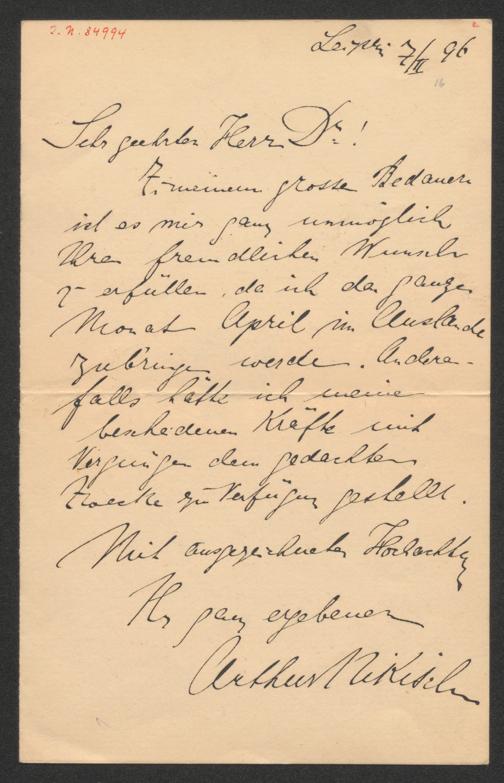 I. N. 84994
2
Leipzig 7/III 96
16
Sehr geehrter Herr Dr.!
Zu meinem grossen Bedauern
ist es mir ganz unmöglich
Ihren freundlichen Wunsch
zu erfüllen, da ich den ganzen
Monat April im Auslande
zubringen werde. Anderen-
falls hätte ich meine
bescheidenen Kräfte mit
Vergnügen dem gedachten
Zwecke zur Verfügung gestellt.
Mit ausgezeichneter Hochachtung
Ihr ganz ergebener
Arthur Nikisch